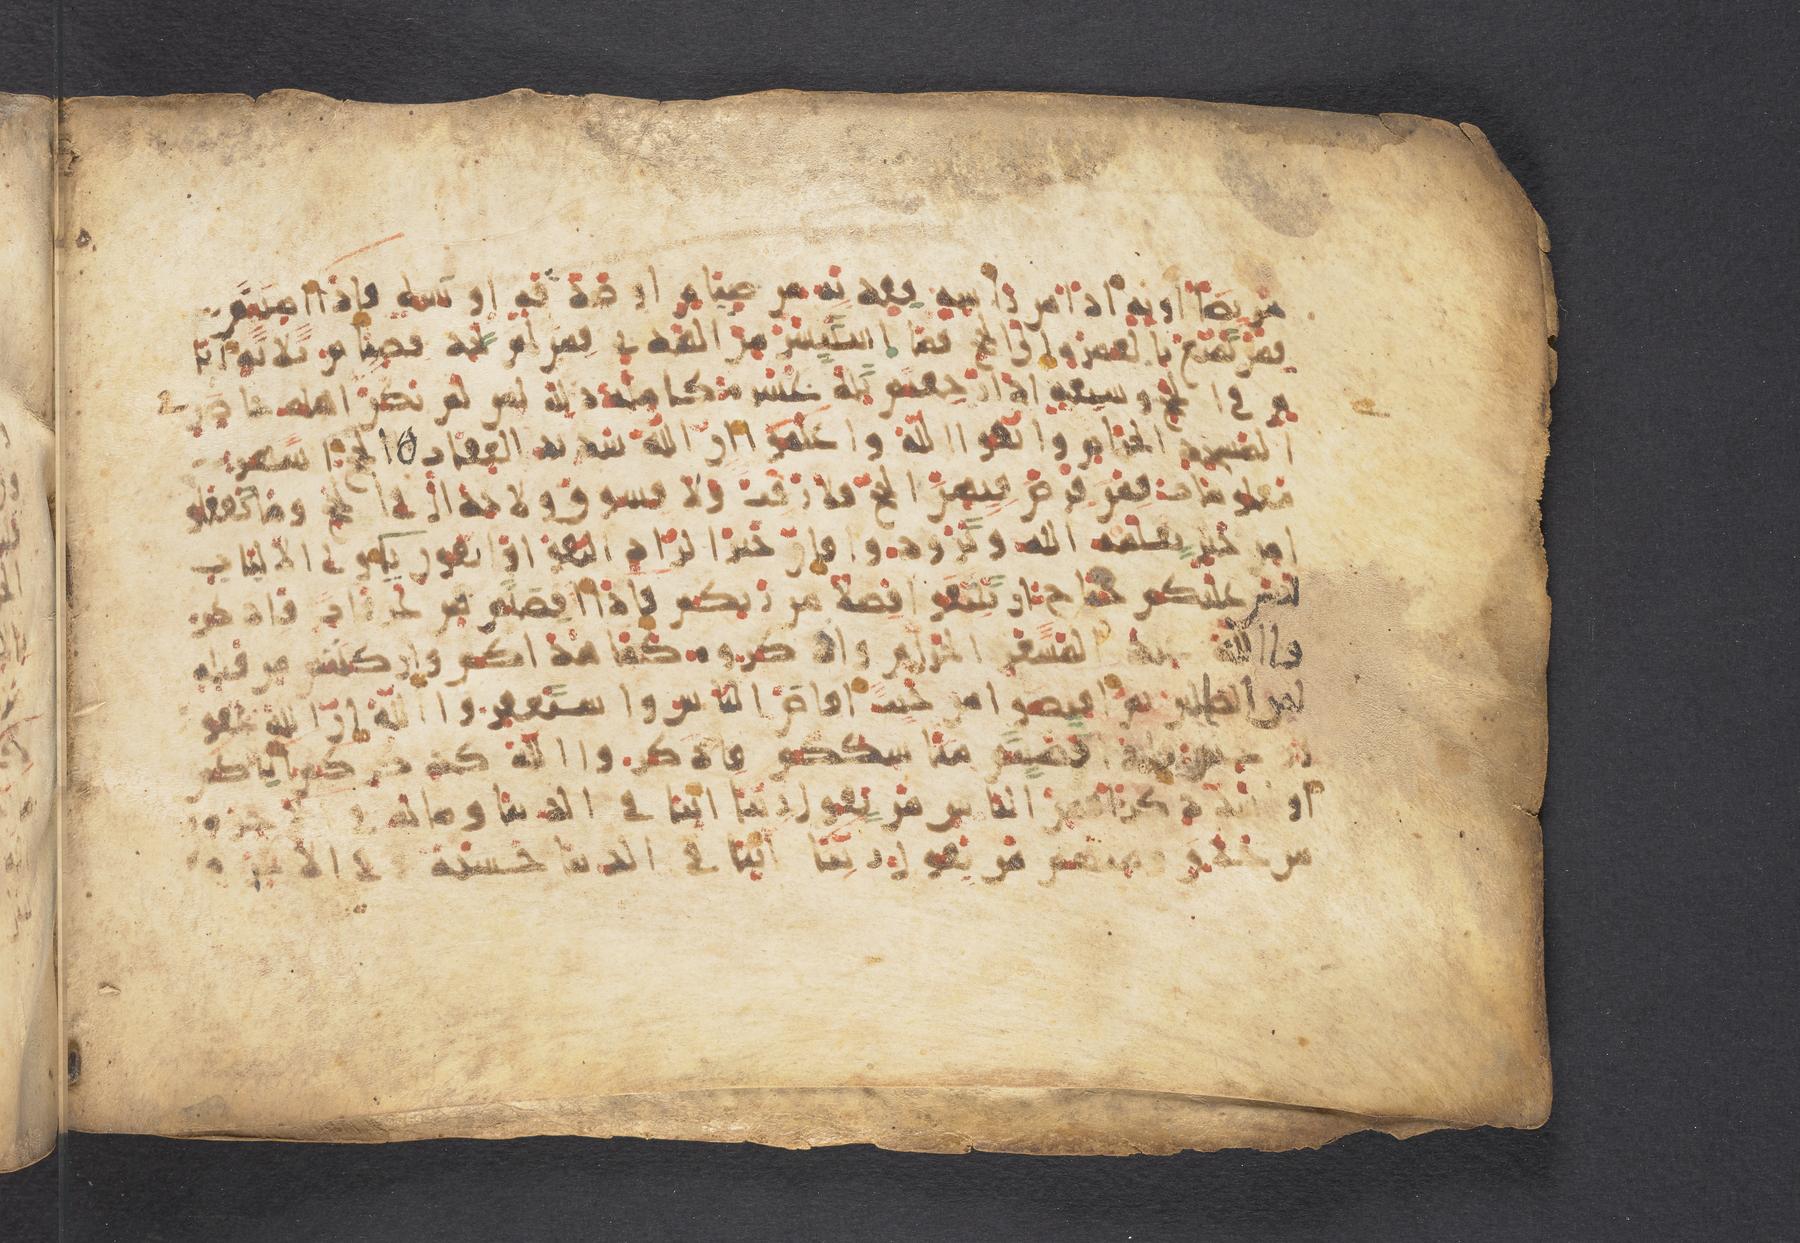 مريضا او به اذا من راسه ففديه من صيام او صدقه او نسك فاذا امنتم
فمن تمتع بالعمره الى الحج فما استيسر من الهدى فمن لم يجد فصيام ثلثه ايا
م فى الحج وسبعه اذا رجعتم تلك عشره كامله ذلك لمن لم يكن اهله حاضرى
المسجد الحرام واتقوا الله واعلموا ان الله شديد العقاب الحج اشهر
معلومات فمن فرض فيهن الحج فلا رفث ولا فسوق ولا جدال فى الحج وما تفعلو
ا من خير يعلمه الله وتزودوا فان خير الزاد التقوى واتقون ياولى الالباب
ليس عليكم جناح ان تبتغوا فضلا من ربكم فاذا افضتم من عرفات فاذكر
وا الله عند المشعر الحرام واذكروه كما هداكم وان كنتم من قبله
لمن الضالين ثم افيضوا من حيث افاض الناس واستغفروا الله ان الله غفو
ر رحيم فاذا قضيتم مناسككم فاذكروا الله كذكركم اباكم
او اشد ذكرا فمن الناس من يقول ربنا اتنا فى الدنيا وما له فى الاخره
من خلق ومنهم من يقول ربنا اتنا فى الدنيا حسنه وفى الاخره